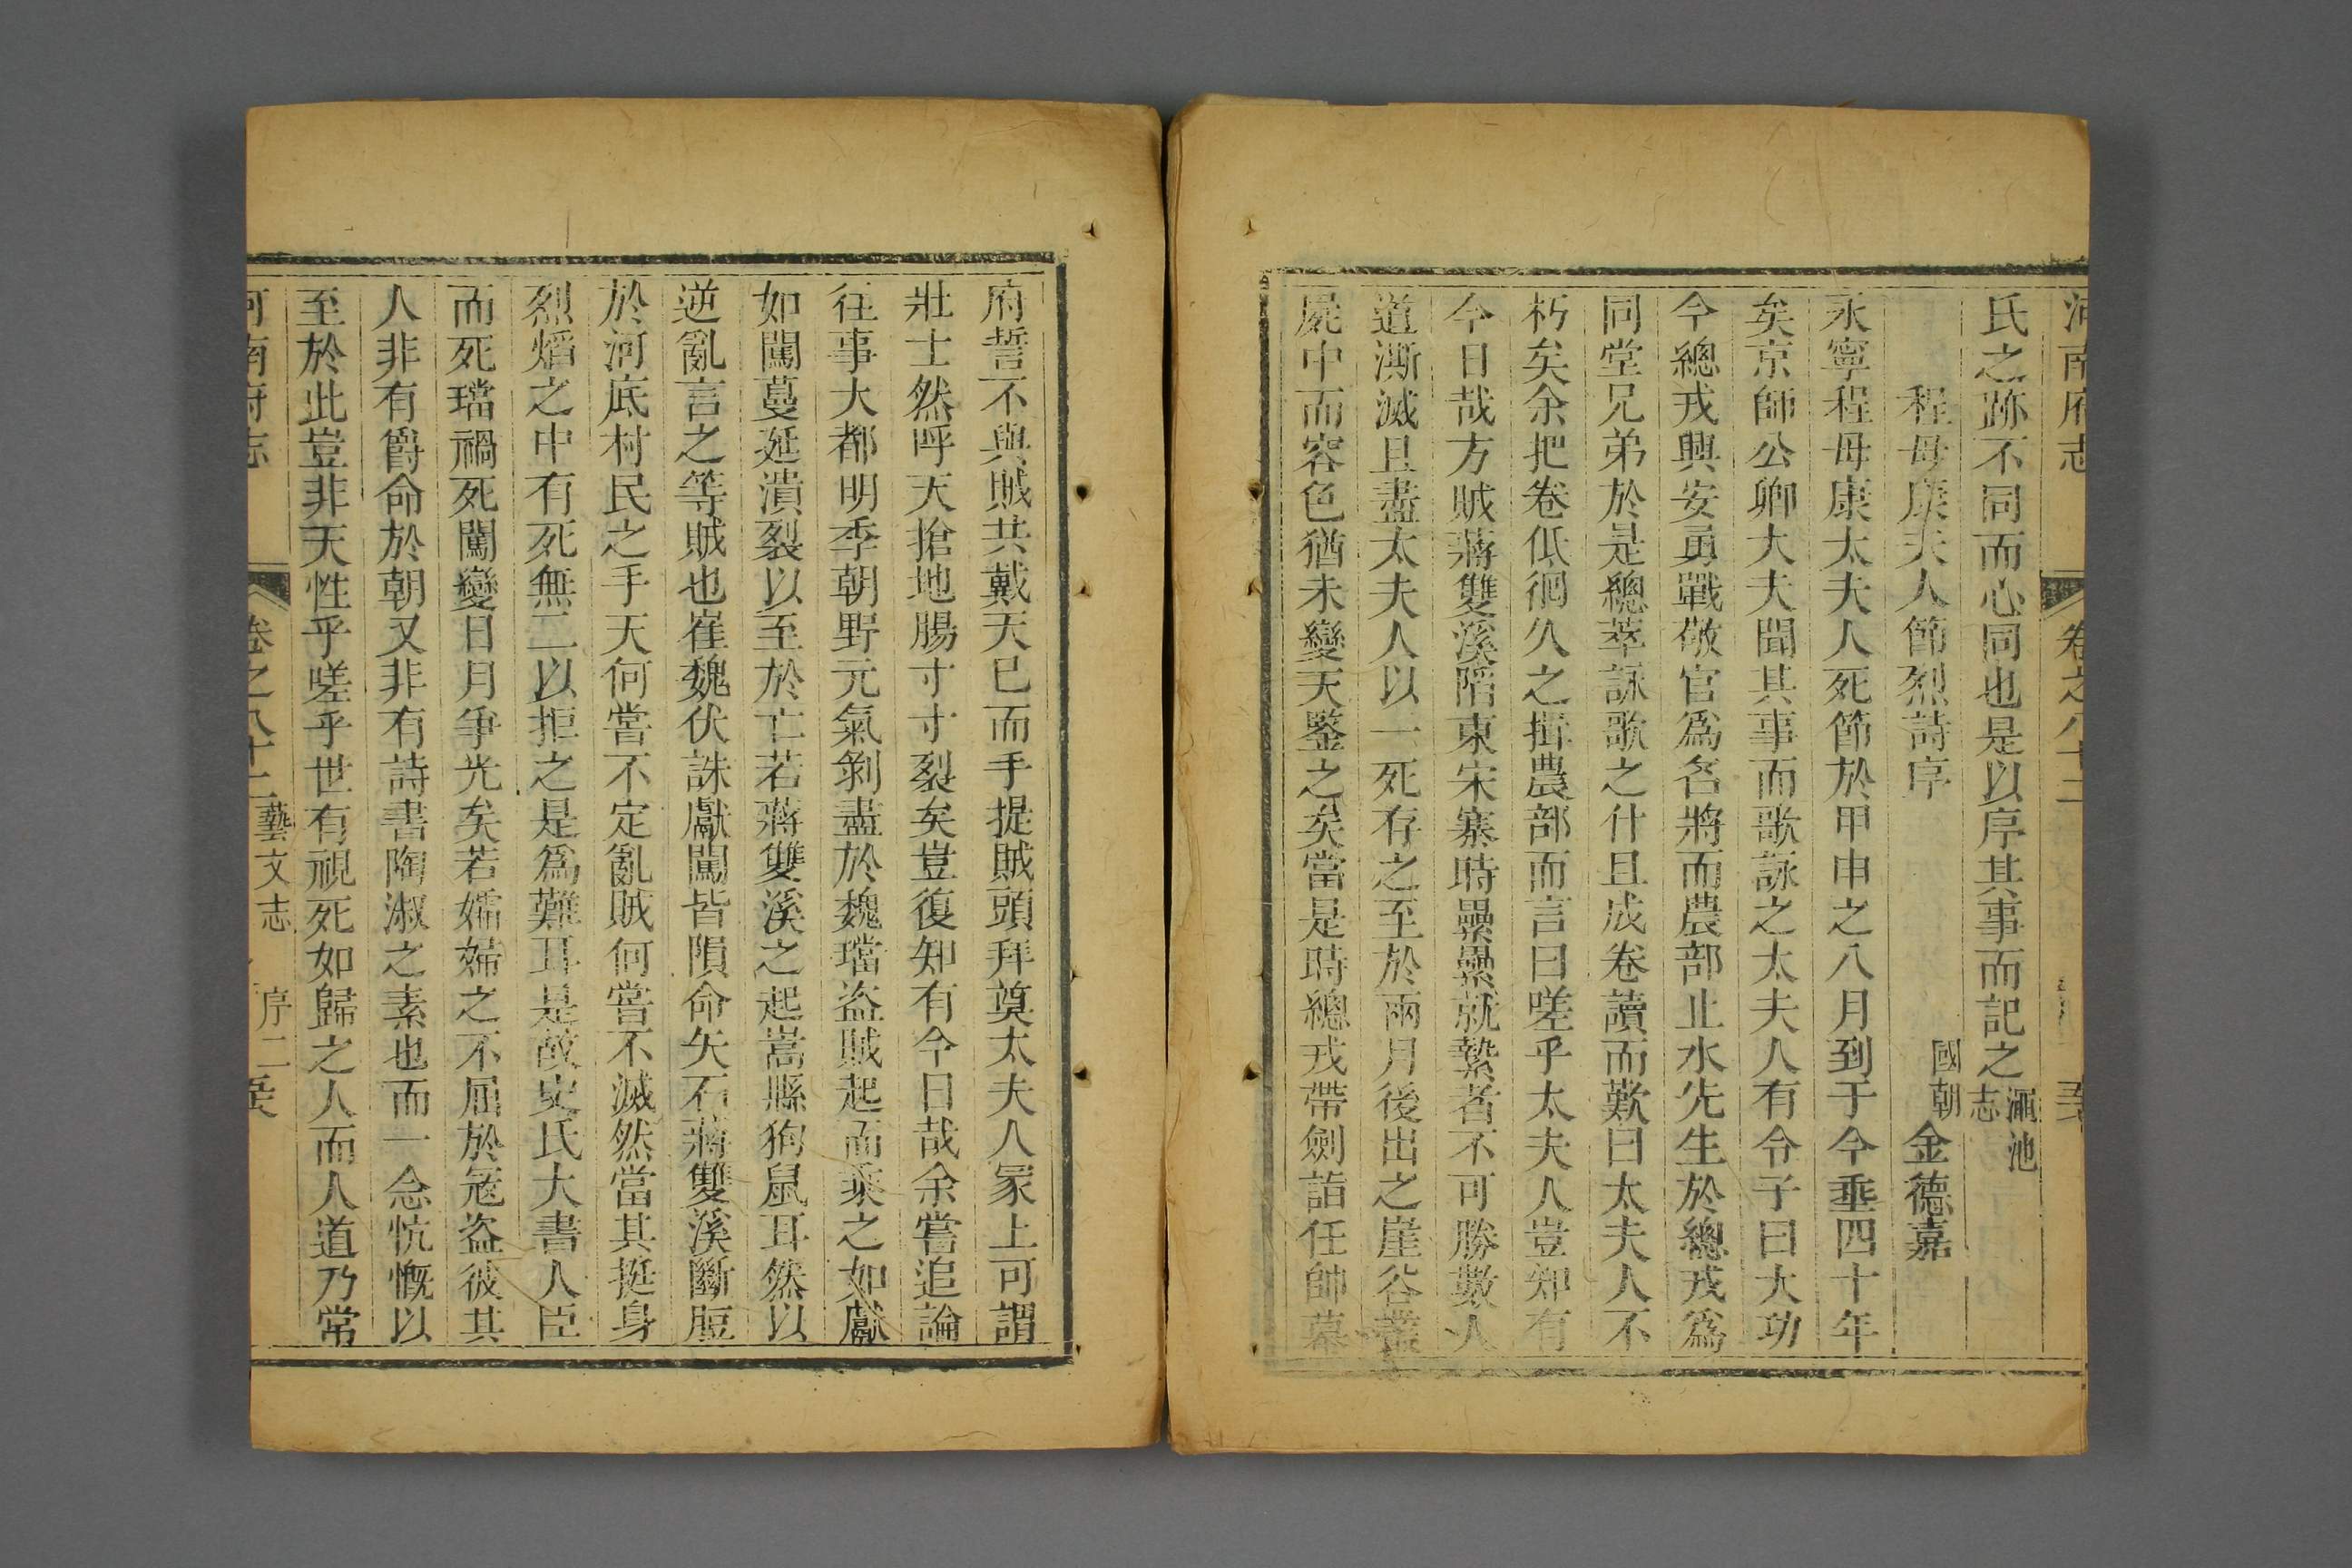 河南府志 卷之八十二
氏之跡不同而心同也是以序其事而記之 澠池志
程母康夫人節烈詩序 國朝 金德嘉
永寧程母康太夫人死節於甲申之八月到于今垂四十年
矣京師公卿大夫聞其事而歌詠之太夫人有令子曰大功
今總戎興安勇戰敬官爲名將而農部止水先生於總戎爲
同堂兄弟於是總萃詠歌之什且成卷讀而歎曰太夫人不
朽矣余把卷低徊久之揖農部而言曰嗟乎太夫人豈知有
今日哉方賊蔣雙溪陷東宋寨時纍纍就縶者不可勝數人
道澌滅且盡太夫人以一死存之至於兩月後出之崖谷叢
屍中而容色猶未變天鑒之矣當是時總戎帶劍詣任帥幕
府誓不與賊共戴天已而手提賊頭拜奠太夫人冢上可謂
壯士然呼天搶地腸寸寸裂矣豈復知有今日哉余嘗追論
往事大都明季朝野元氣剝盡於魏璫盜賊起而乘之如獻
如闖蔓延潰裂以至於亡若蔣雙溪之起嵩縣狗鼠耳然以
逆亂言之等賊也崔魏伏誅獻闖皆隕命矢石蔣雙溪斷脰
於河底村民之手天何嘗不定亂賊何嘗不滅然當其挺身
烈熖之中有死無二以拒之是爲難耳是故史氏大書人臣
而死璫禍死闖變日月爭光矣若孀婦之不屈於冦盜彼其
人非有爵命於朝又非有詩書陶淑之素也而一念忼慨以
至於此豈非天性乎嗟乎世有視死如歸之人而人道乃常
河南府志 卷之八十二 藝文志 序二